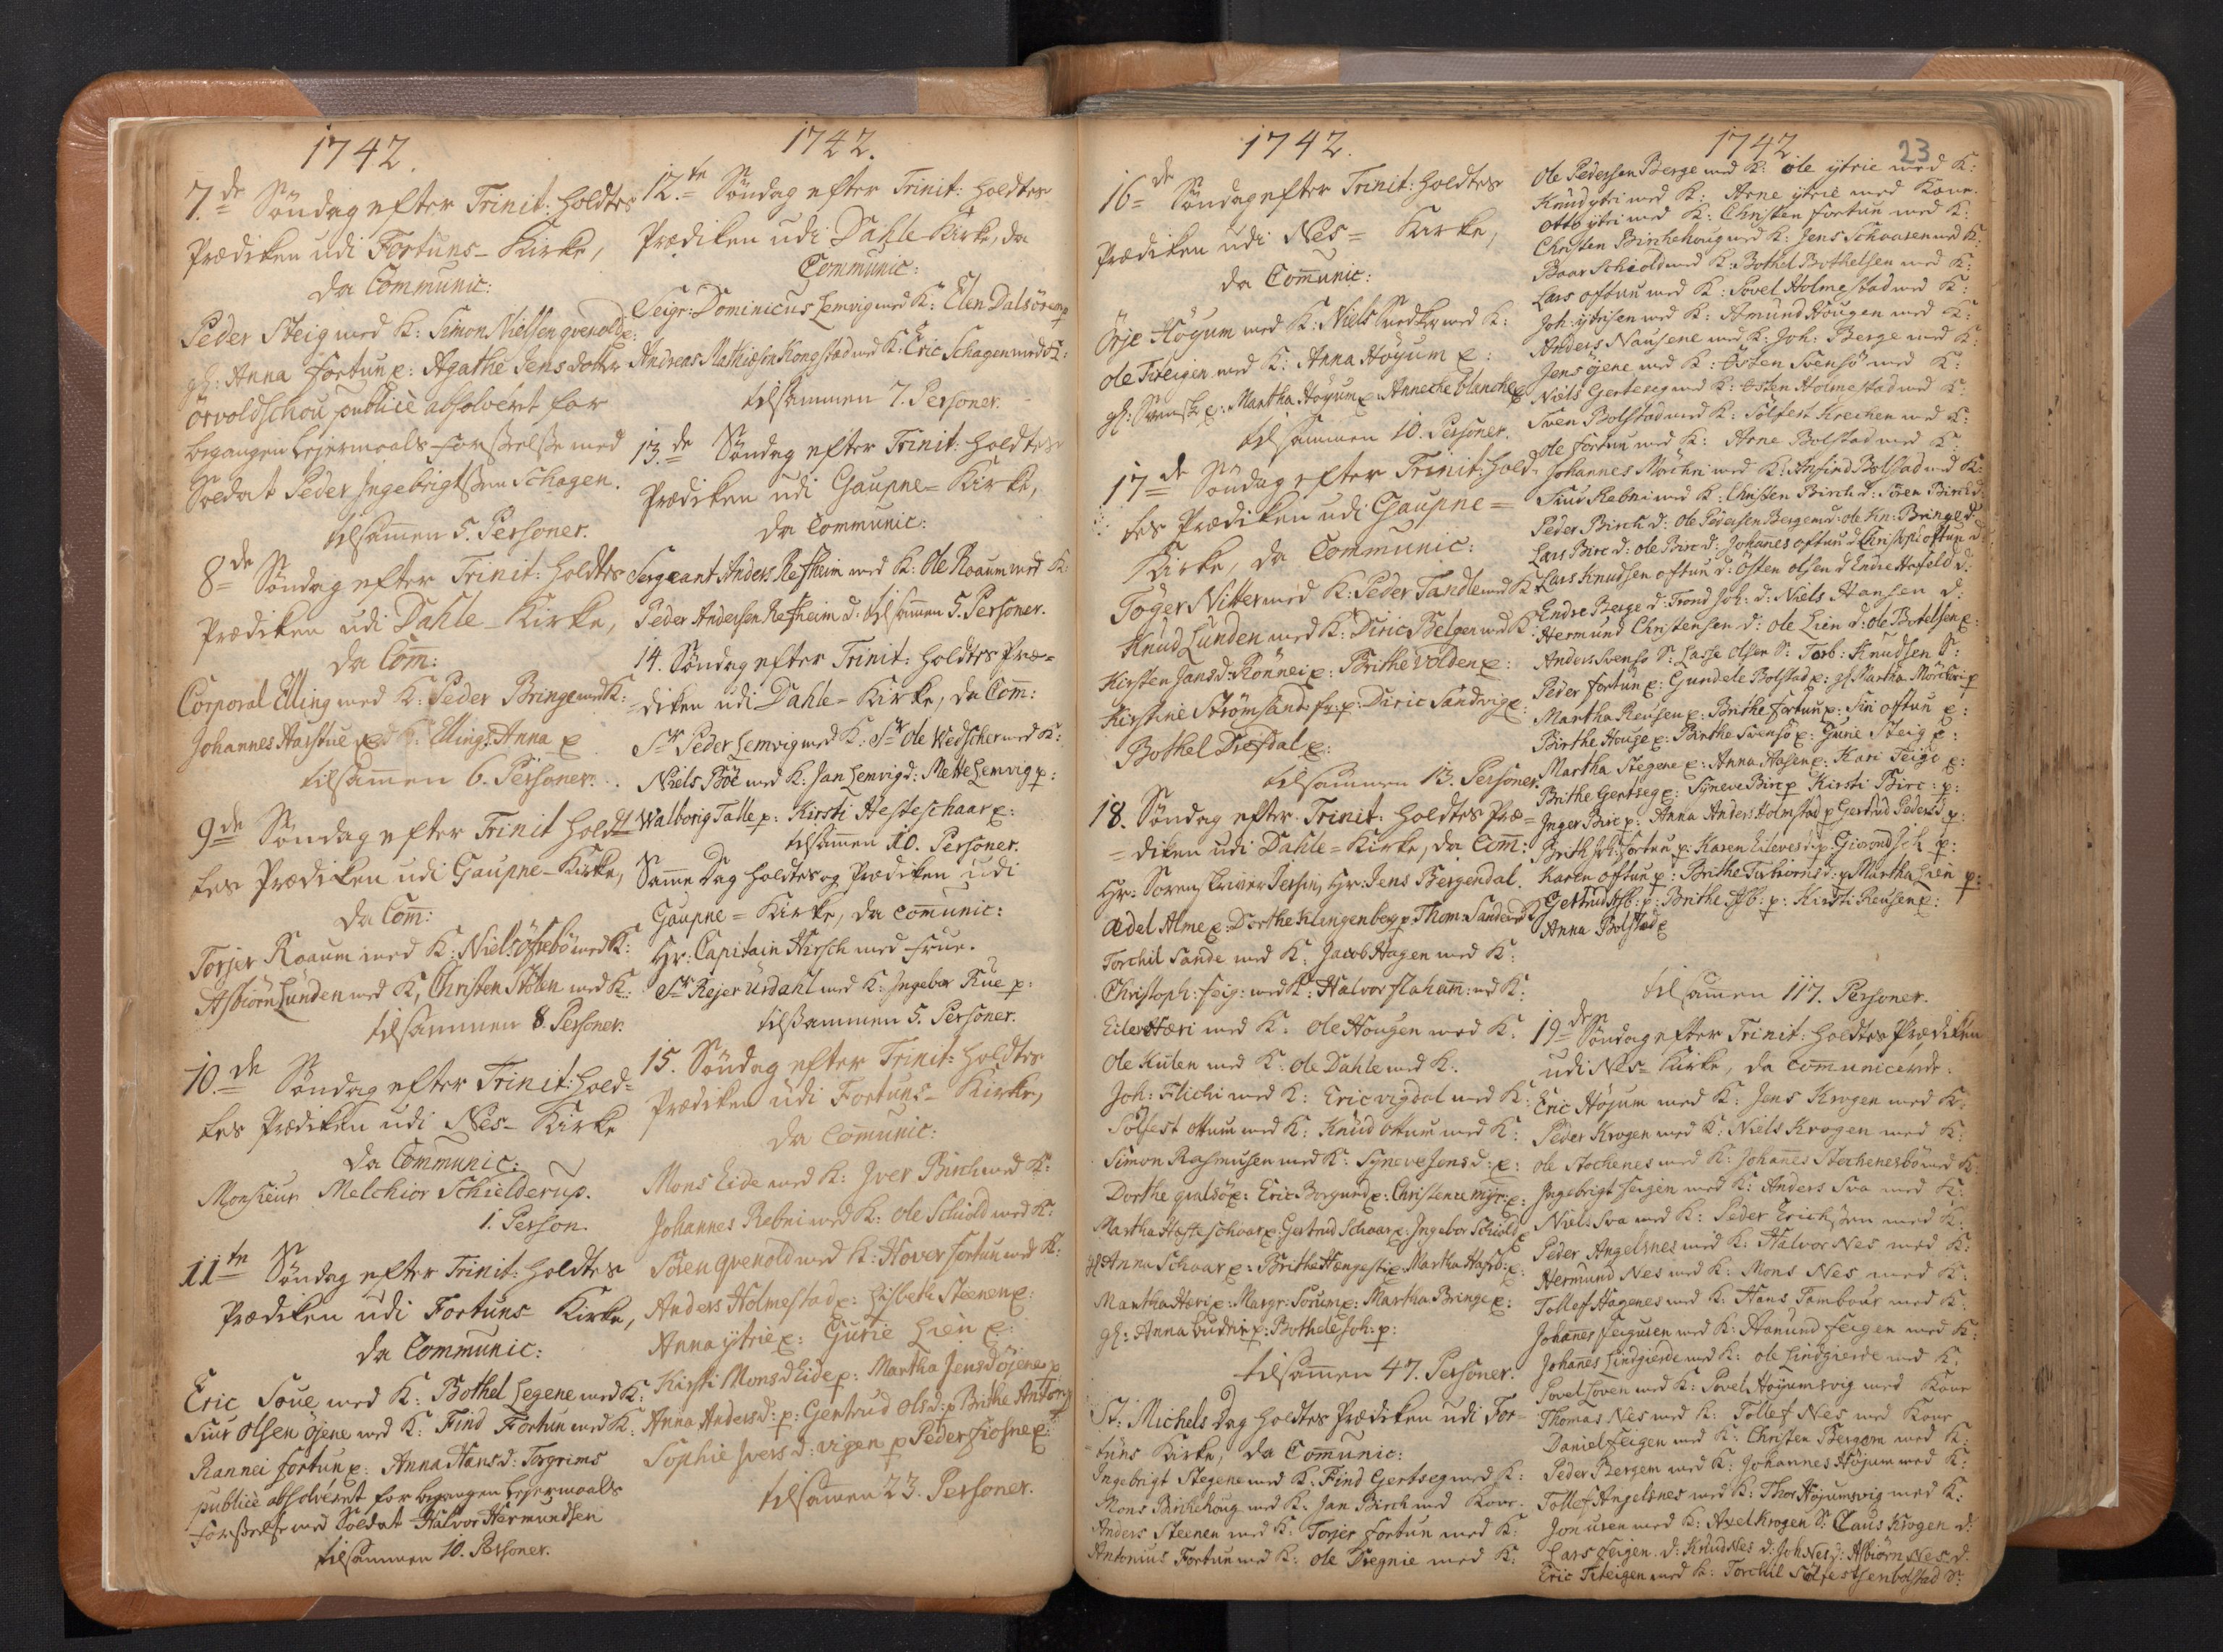 1742.
7de Söndag efter Trinit: holdtes
Prædiken udi Fortuns-Kirke,
da Communic:
Peder Steig med K: Simon Nielsen qvenold p:
gl: Anna Fortun p: Agathe Jensdotter
publicè absolveret for
begangen leiermaals-forseelse med
Soldat Peder Ingebrigtsen Schagen.
tilsamen 5. Personer.
8de Söndag efter Trinit: holdtes
Prædiken udi Dahle-Kirke,
da Com:
Corporal Elling med K: Peder Bringe med K:
Johannes Harstue med K: Anna p
tilsamen 6. Personer.
9de Söndag efter Trinit hold
tes Prædiken udi Gaupne-Kirke,
da Com:
Torjer Roaum med K: Niels Öfsebö med K:
Asbiörn Lunden med K, Christen med K:
tilsammen 8. Personer.
10.de Söndag efter Trinit: hold=
tes Prædiken udi Nes-Kirke
da Communic:
Monsieur Melchior Schielderup.
1. Person.
11te Söndag efter Trinit: holdtes
Prædiken udi Fortuns Kirke,
da Communic:
Eric Soue med K: Bothel Legene med K:
Siur Olsen öjene med K: Find Fortun med K:
Rannei Fortun p: Anna Hansd: Torgrims
publicè absolveret for begangen leiermaals
forseelse med Soldat Halvor Hermundsen
tilsammen 10. Personer.
1742.
12.te Söndag efter Trinit: holdtes
Prædiken udi Dahle Kirke, da
Communic:
Seigr: Dominicus Lemvig med K: Elen Dalsören p
Andreas Mathiesen Kongstad med K: Eric Schagen med K:
tilsammen 7. Personer.
13.de Söndag efter Trinit: holdtes
Prædiken udi Gaupne=Kirke,
da Communic:
Sergeant Anders Refheim med K: Ole Roaum med K:
Peder Andersen Refheim d: tilsamen 5. Personer.
14. Söndag efter Trinit: holdtes Præ=
=diken udi Dahle=Kirke, da Com:
Sr Peder Lemvig med K: Sr Ole Wedscher med K:
Niels Böe med K: Jan Lemvig d: Mette Lemvig p:
Walborig Talle p: Kirsti Hesteschaar p:
tilsamen 10. Personer.
Samme Dag holdtes og Prædiken udi
Gaupne=Kirke, da comunic:
Hr: Capitain Hirsch med Frue.
Sr Rejer Urdahl med K: Ingebor Rue p:
tilsammen 5. Personer.
15. Söndag efter Trinit: holdtes
Prædiken udi Fortuns-Kirke,
da Comunic:
Mons Eide med K: Iver Birch med K:
Johannes Rebni med K: Ole Schiold med K:
Sören qvenold med K: Hover Fortun med K:
Anders Holmestad p: Lisbeth Steenen p:
Anna ytrie p: Gurie Lien p:
Kirsti Monsd Eide p: Martha Jensd öjene p
Anna Andersd: p: Gertrud Olsd: p Brithe Anton p
Sophie Iversd: vigen p Peder Fiosne p:
tilsamen 23. Personer.
1742.
16de Söndag efter Trinit: holdtes
Prædiken udi Nes= Kirke,
da Comunic:
Örje Höyum med K: Niels Snedker med K:
Ole Titeigen med K: Anna Höyum p:
gl: p: Martha Höyum p: Anneche blanche p
tilsammen 10. Personer.
17de Söndag efter Trinit: hold=
tes Prædiken udi Gaupne=
Kirke, da Communic:
Töger Nitter med K: Peder Tandle med K:
Knud Lunden med K: Diric Belgen med K:
Kirsten Jansd: Rönnei p: Brithe Volden p:
Kirstine Strömsand fr: p: Diric Sandvig p:
Bothel Diefdal p:
tilsammen 13. Personer.
18. Söndag efter Trinit: holdtes Præ=
=diken udi Dahle=Kirke, da Com:
Hr: Sorenskriver Jersin, Hr: Jens Bergendal.
Ædel Alme p: Dorthe Klingenberg p: Thom: Sande med K
Torchil Sande med K: Jacob Hagen med K:
Christoph: Feig: med K: Halvor Flaham: md K:
Eilev Hæri med K: Ole Hougen med K:
Ole Kulen med K: Ole Dahle med K.
Joh: Flichi med K: Eric vigdal med K:
Sölfest Ottum med K: Knud Ottum med K:
Simon Rasmusen med K: Syneve Jensd: p:
Dorthe qvalsö p: Eric Borgund p: Christence myr: p:
Martha Hesteschoar p: Gertrud Schoar p: Ingebor Schiold p
gl Anna Schoar p: Brithe Hængesti p: Martha p:
Martha Hæri p: Margr: Sorum p: Martha Bringe p:
gl: Anna p: Bothele Joh: p:
tilsamen 47. Personer.
St: Michels Dag holdtes Prædiken udi For=
tuns Kirke, da Comunic:
Ingebrigt Stegene med K: Find Gertseg med K:
Mons Birchehoug med K: Jan Birch med Kone.
Anders Steenen med K: Torjer Fortun med K:
Antonius Fortun med K: Ole Tregnie med K:
1742
23
Ole Pedersen Berge med K: Ole ytrie med K:
Knud ytri med K: Arne ytrie med Kone.
Otto ytri med K: Christen Fortun med K:
Christen Birchehoug med K: Jens Schoaren med K:
Baar Schiold med K: Bothel Bothelsen med K:
Lars Oftun med K: Povel Holmestad med K:
Joh: ytrisen med K: Amund Hougen med K:
Anders Nausene med K: Joh: Berge med K:
Jens öjene med K: Östen Svensö med K:
Niels Gertseg med K: Östen Holmestad med K:
Sven Bolstad med K: Sölfest Krechen med K:
Ole Fortun med K: Arne Bolstad med K:
Johannes Mörchri med K: Anfind Bolstad med K:
Siur Rebni med K: Christen Birch d: Sören Birch d
Peder Birch d: Ole Pedersen Bergem d: Ole Kn: Bringe d
Lars Birc d: Ole Birc d: Johannes Oftun d Christoph: Oftun d
Lars Knudsen Oftun d: Östen Olsen d Endre Hafeld d:
Endre Berge d: Trond Joh: d: Niels Hansen d:
Hermund Christensen d: Ole Lien d: Ole Botelsen p:
Anders Svensö S: Lasse Olsen S: Torb: Knudsen S:
Peder Fortun p: Gundele Bolstad p: gl Martha Mörchri p
Martha Reusen p: Brithe Fortun p: Siri Oftun p:
Birthe Houge p: Birthe Svensö p: Gurie Steig p:
Martha Stegene p: Anna Hasen p: Kari Teige p:
Brithe Gertseg p: Syneve Birc p Kirsti Birc: p:
Inger Birc p: Anna Anders Holmstad p Gertrud Pedersd p:
Brith Joh: Fortun p: Karen Eilevesd: p: p:
Karen Oftun p: Brithe Torbiörnsd: p Martha Lien p:
Gertrud Asb: p: Brithe Asb: p: Kirsti Reusen p:
Anna Bolstad p
tilsamen 117. Personer.
19de Söndag efter Trinit: holdtes Prædiken
udi Nes= Kirke, da comunicerde:
Eric Höjum med K: Jens Krogen med K:
Peder Krogen med K: Niels Krogen med K:
Ole Stochenes med K: Johanes Stochenesbö med K:
Ingebrigt Feigen med K: Anders Sva med K:
Niels Sva med K: Peder Erichsen med K:
Peder Angelsnes med K: Halvor Nes med K:
Hermund Nes med K: Mons Nes med K:
Tollef Hagenes med K: Hans Tambour med K:
Johanes Feigusen med K: Hamund Feigen med K:
Johanes Lindgierde med K: Ole Lindgierde med K:
Povel Loven med K: Povel Höyumsvig med Kone
Thomas Nes med K: Tollef Nes med Kone
Daniel Feigen med K: Christen Bergem med K:
Peder Bergem med K: Johannes Höjum med K:
Tollef Angelsnes med K: Thor Höjumsvig med K:
Jon Uren med K: Axel Krogen S: Claus Krogen d:
Lars Feigen d: Knud Nes d: Joh Nes d: Asbiörn Nes d.
Eric Titeigen med K: Torchil Sölfestsen bolstad S: